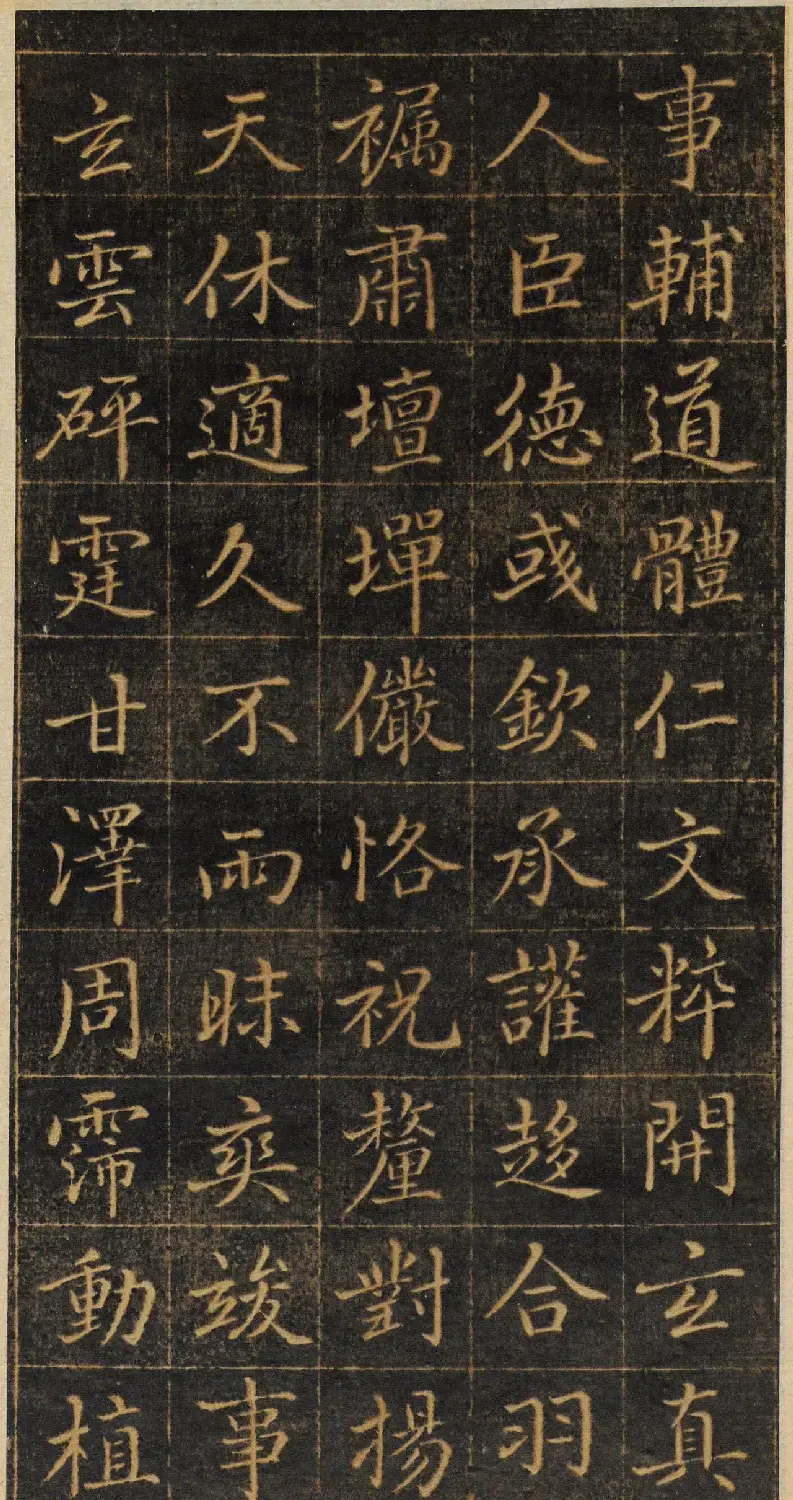 事輔道體仁文粹開玄真
人臣德彧欽承讙趍合羽
肅壇墠儼恪祝釐對揚
天休適久不雨昧爽竣事
玄雲砰霆甘澤周霈動植